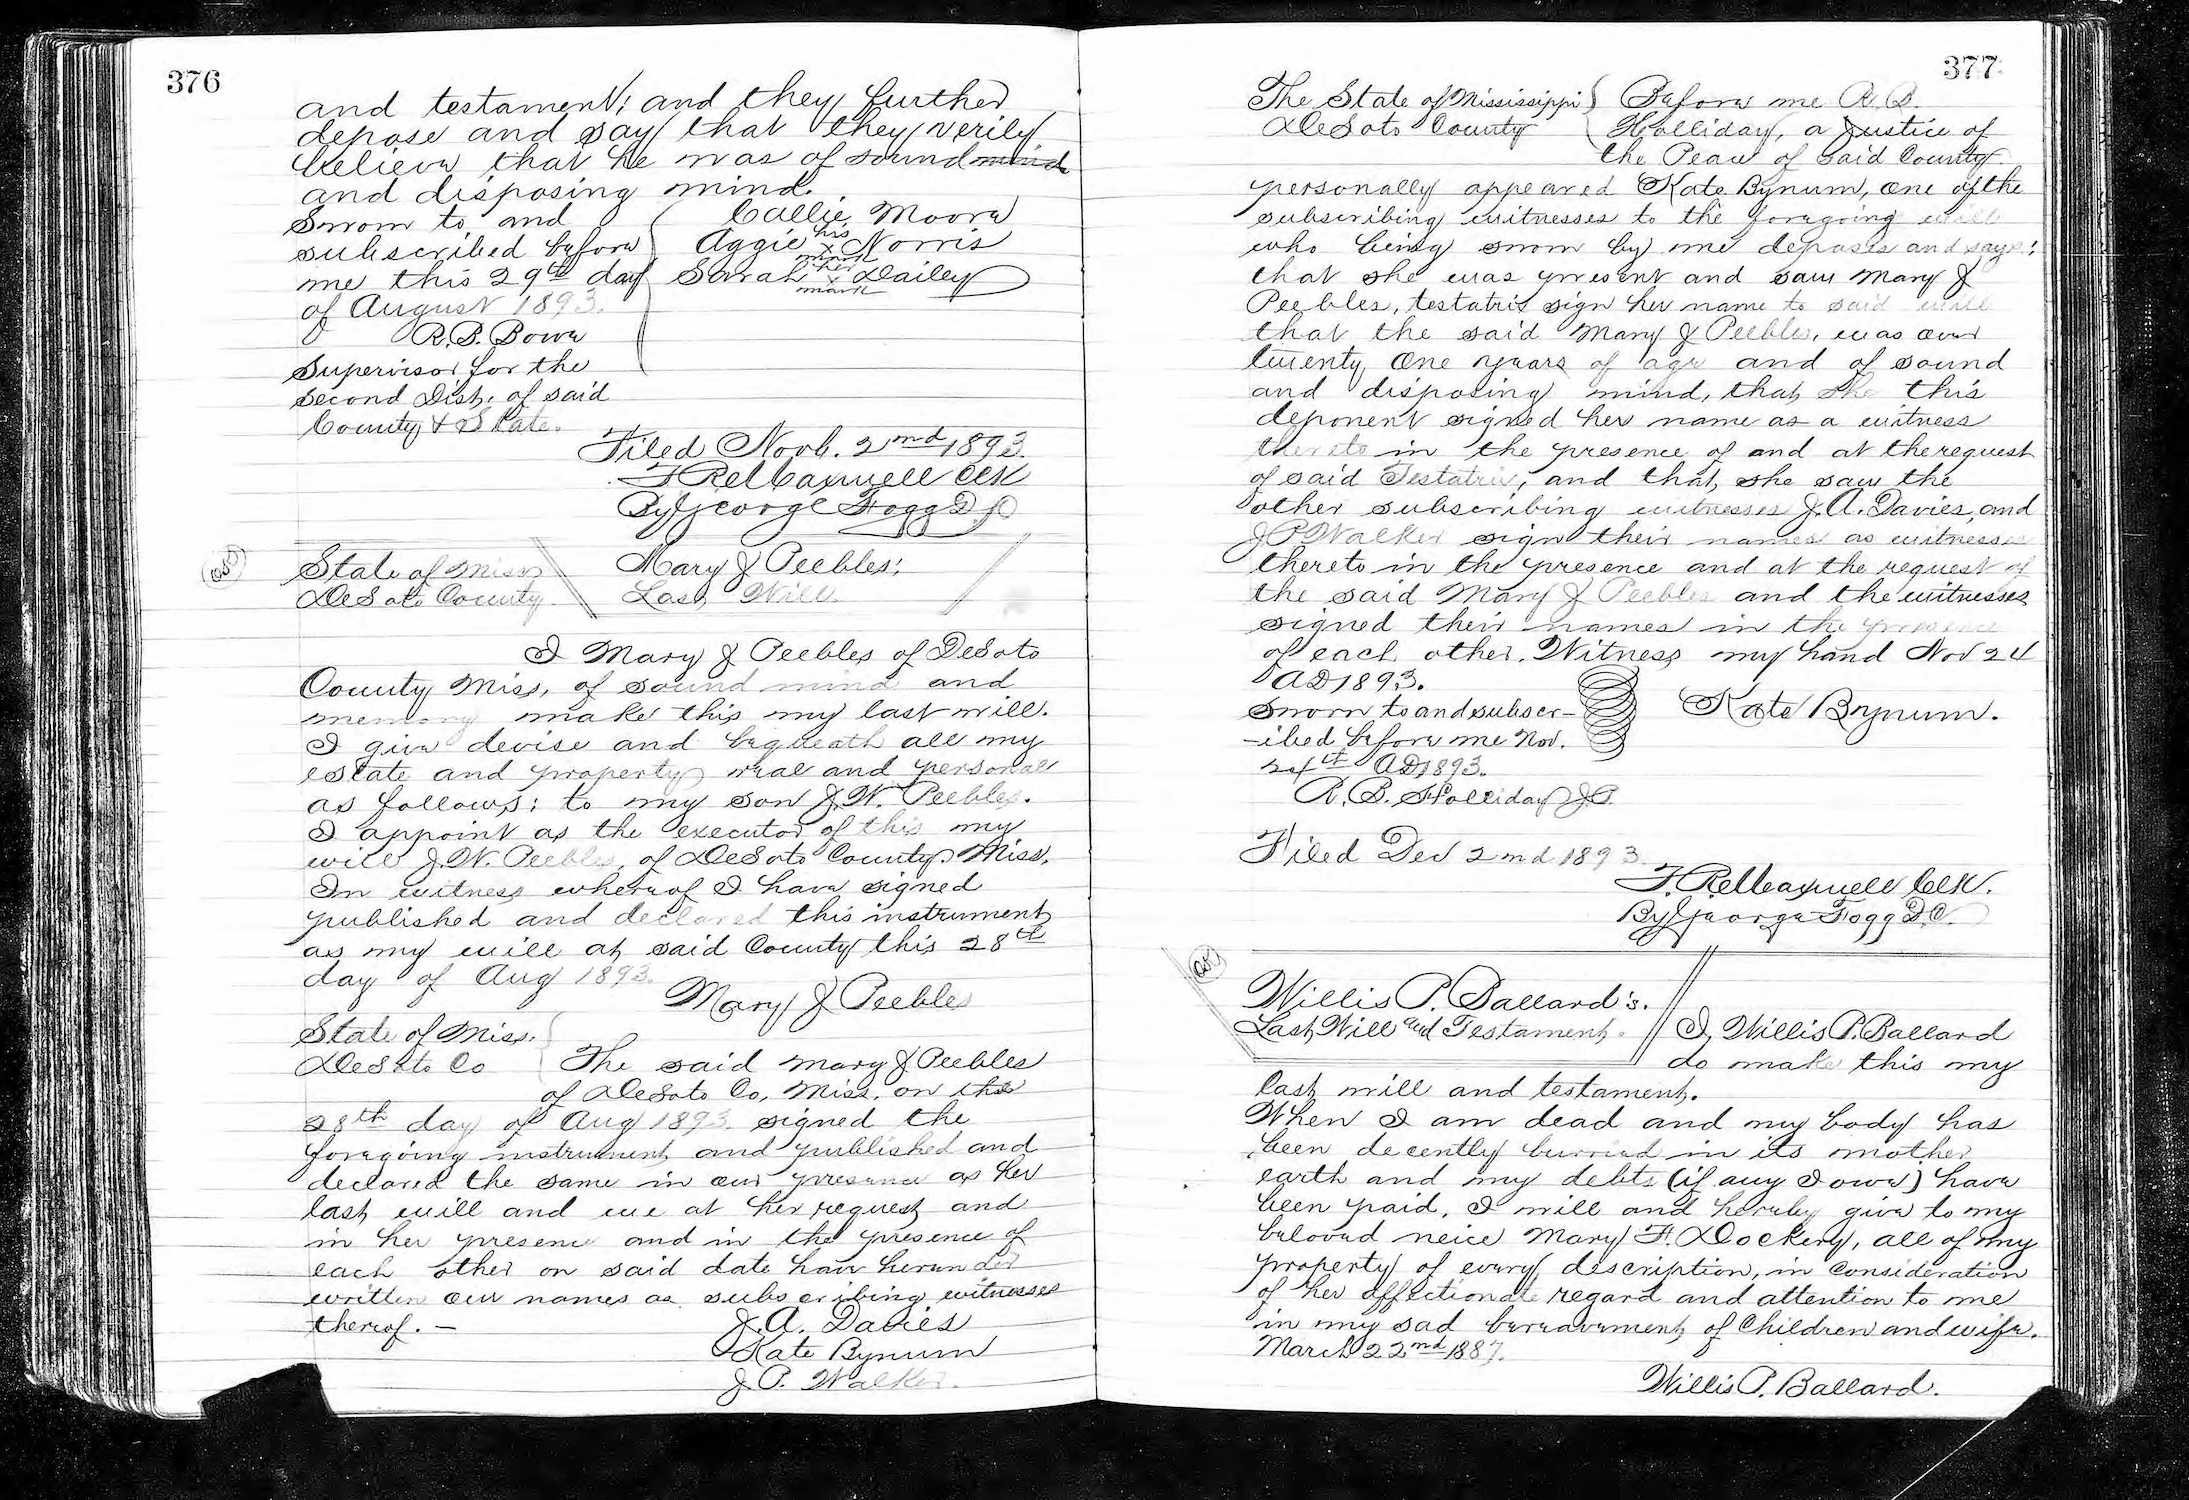 376
and testament; and they further
depose and say that they verily
believe that he was of sound mind
and disposing mind.
Sworn to and
subscribed before
me this 29th day
of August 1893.
R.B. Bowe
Supervisor for the
second Dist. of said
County & State.
Callie Moore
Aggie his x mark Norris
Sarah her x mark Dailey
Filed Novb. 2nd 1893.
Clk
By George Fogg D.C.
State of Miss
DeSoto County
Mary J Peebles;
Last Will.
I Mary J Peebles of DeSoto
County Miss, of sound mind and
memory make this my last will.
I give devise and bequeath all my
estate and property real and personal
as follows; to my son J.W. Peebles.
I appoint as the executor of this my
will J.W. Peebles, of DeSoto County Miss.
In witness whereof I have signed
published and declared this instrument
as my will at said County this 28th
day of Aug 1893.
Mary J Peebles
State of Miss.
DeSoto Co
The said Mary J Peebles
of DeSoto Co, Miss. on the
28th day of Aug 1893. signed the
foregoing instrument and published and
declared the same in our presence as her
last will and we at her request and
in her presence and in the presence of
each other on said date have hereunder
written our names as subscribing witnesses
thereof. —
J.A. Davies
Kate Bynum
J.P. Walker.
377
The State of Mississippi
DeSoto County
Before me R.B.
Holliday, a Justice of
the Peace of said County
personally appeared Kate Bynum, one of the
subscribing witnesses to the foregoing will
who being sworn by me deposes and says;
that she was present and saw Mary J
Peebles, testatrix sign her name to said will
that the said Mary J Peebles, was over
twenty one years of age and of sound
and disposing mind, that she this
deponent signed her name as a witness
thereto in the presence of and at the request
of said Testatrix, and that she saw the
other subscribing witnesses J.A. Davies, and
J P Walker sign their names as witnesses
thereto in the presence and at the request of
the said Mary J Peebles and the witnesses
signed their names in the presence
of each other. Witness my hand Nov 24
AD 1893.
Sworn to and subscr-
-ibed before me Nov.
24th AD 1893.
R.B. Holliday J.P.
Kate Bynum.
Filed Dec 2nd 1893
Clk.
By George Fogg D.C.
Willis P. Ballard's.
Last Will and Testament.
I, Willis P. Ballard
do make this my
last will and testament.
When I am dead and my body has
been decently burried in its mother
earth and my debts (if any I owe) have
been paid, I will and hereby give to my
beloved neice Mary F. Dockery, all of my
property of every description, in consideration
of her affectionate regard and attention to me
in my sad bereavement of Children and wife.
March 22nd 1887.
Willis P. Ballard.